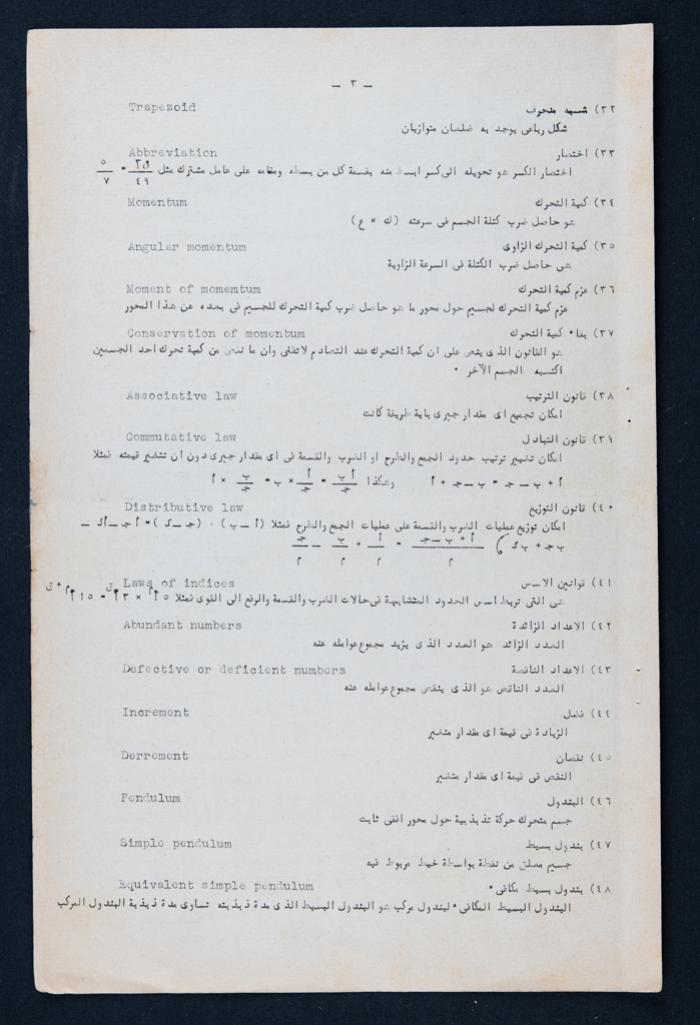 — ٣ —
٣٢) شبه منحرف Trapezoid
شكل رباعى يوجد به ضلعان متوازيان
٣٣) اختصار Abbreviation
اختصار الكسر هو تحويله الى كسر ابسط منه بقسمة كل من بسطه ومقامه على عامل مشترك مثل ٣٥/٤٩ = ٥/٧
٣٤) كمية التحرك Momentum
هو حاصل ضرب كتلة الجسم فى سرعته (ك × ع)
٣٥) كمية التحرك الزاوى Angular momentum
هى حاصل ضرب الكتلة فى السرعة الزاوية
٣٦) عزم كمية التحرك Moment of momemtum
عزم كمية التحرك لجسيم حول محور ما هو حاصل ضرب كمية التحرك للجسيم فى بعده عن هذا المحور
٣٧) بقاء كمية التحرك Conservation of momentum
هو القانون الذى ينص على ان كمية التحرك عند التصادم لا تفنى وان ما نقص من كمية تحرك احد الجسمين
اكتسبه الجسم الآخر .
٣٨) قانون الترتيب Associative law
امكان تجميع اى مقدار جبرى باية طريقة كانت
٣٩) قانون التبادل Commutative law
امكان تغيير ترتيب حدود الجمع والطرح او الضرب والقسمة فى اى مقدار جبرى دون ان تتغير قيمته فمثلا
أ + ب — ج = ب — ج + أ وهكذا أب/ج = أ/ج × ب = ب/ج × أ
٤٠) قانون التوزيع Distributive law
امكان توزيع عمليات الضرب والقسمة على عمليات الجمع والطرح فمثلا (أ — ب) . (ج — د) = أج — أد —
ب ج + ب د ، أ + ب — ج/م = أ/م + ب/م — ج/م
٤١) قوانين الاسس Laws of indices
هى التى تربط اسس الحدود المتشابهة فى حالات الضرب والقسمة والرفع الى القوى فمثلا
٤٢) الاعداد الزائدة Abundant numbers
العدد الزائد هو العدد الذى يزيد مجموع عوامله عنه
٤٣) الاعداد الناقصة Defective or deficient numbers
العدد الناقص هو الذى ينقص مجموع عوامله عنه
٤٤) فضل Increment
الزيادة فى قيمة اى مقدار متغير
٤٥) نقصان Derrement
النقص فى قيمة اى مقدار متغير
٤٦) البندول Pendulum
جسم متحرك حركة تذبذبية حول محور افقى ثابت
٤٧) بندول بسيط Simple pendulum
جسيم معلق من نقطة بواسطة خيط مربوط فيه
٤٨) بندول بسيط مكافىء Equivalent simple pendulum
البندول البسيط المكافىء لبندول مركب هو البندول البسيط الذى مدة ذبذبته تساوى مدة ذبذبة البندول المركب